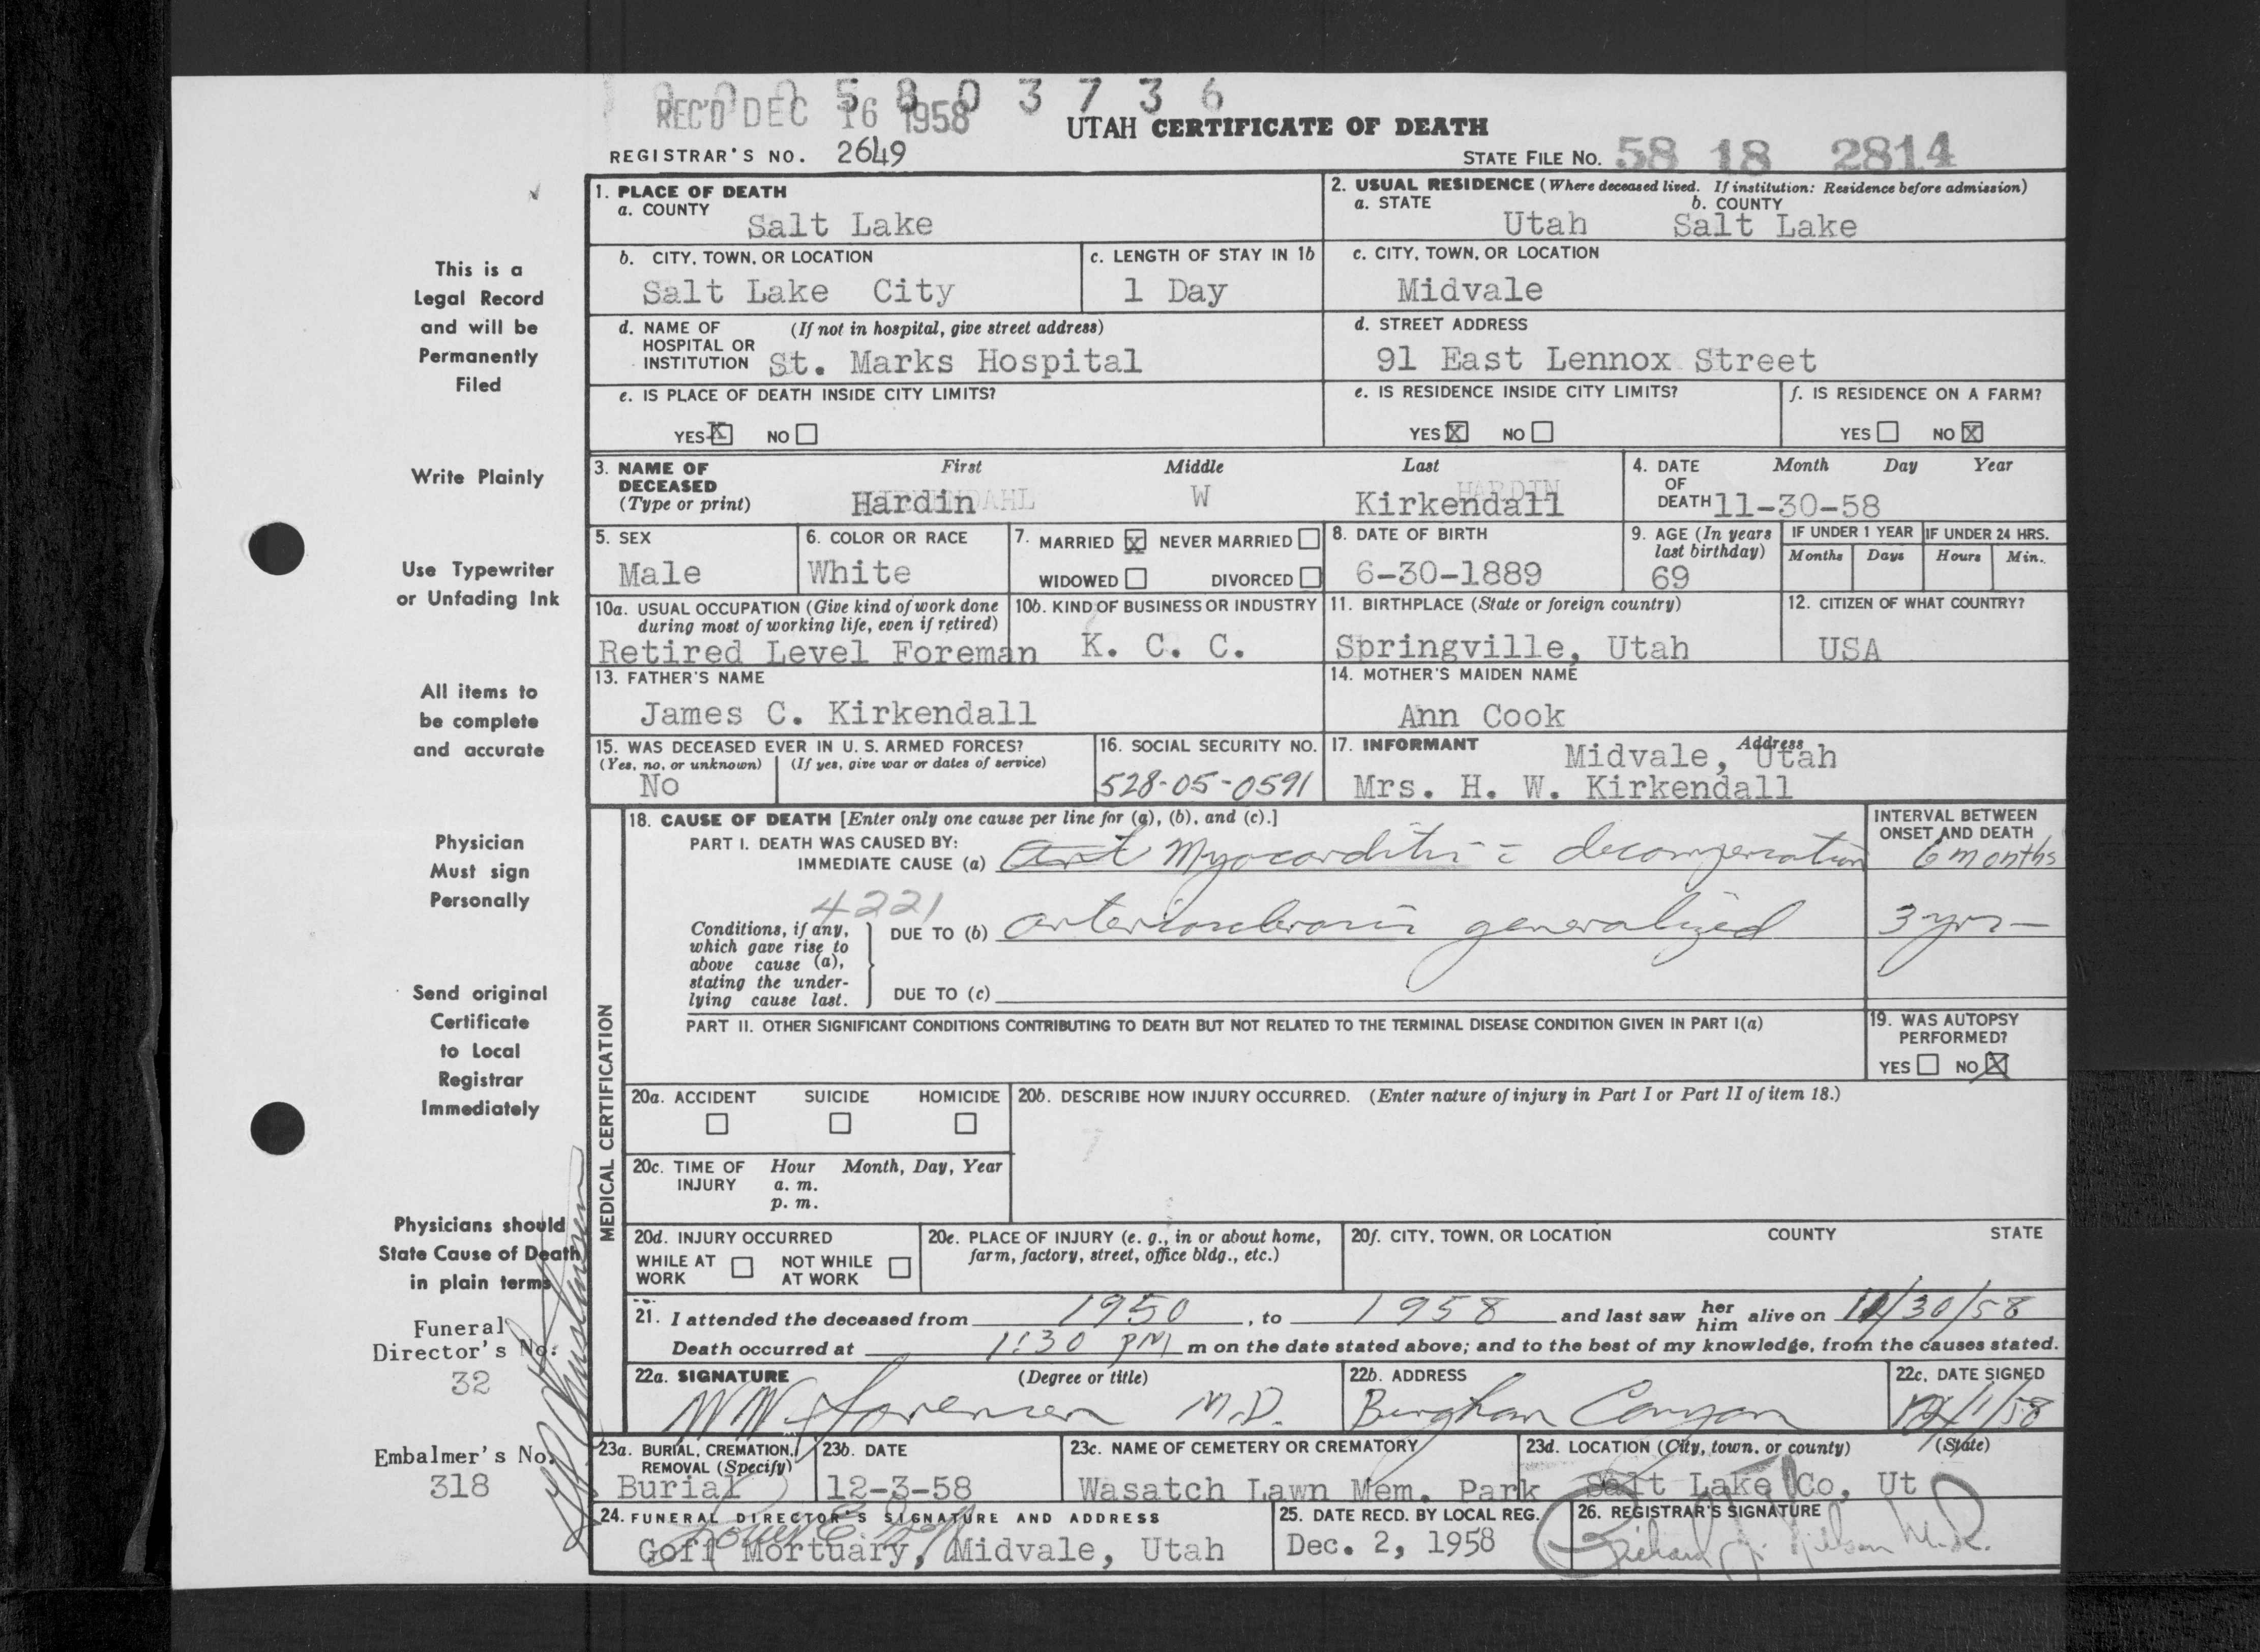 0 0 0 5 8 0 3 7 3 6
REC'D DEC 16 1958
UTAH CERTIFICATE OF DEATH
REGISTRAR'S NO. 2649
STATE FILE NO. 58 18 2814
This is a
Legal Record
and will be
Permanently
Filed
Write Plainly
Use Typewriter
or Unfading Ink
All items to
be complete
and accurate
Physician
Must sign
Personally
Send original
Certificate
to Local
Registrar
Immediately
Physicians should
State Cause of Death
in plain terms
Funeral
Director's No:
32
Embalmer's No.
318
1. PLACE OF DEATH
a. COUNTY
Salt Lake
2. USUAL RESIDENCE (Where deceased lived. If institution: Residence before admission)
a. STATE b. COUNTY
Utah Salt Lake
b. CITY, TOWN, OR LOCATION
Salt Lake City
c. LENGTH OF STAY IN 1b
1 Day
c. CITY, TOWN, OR LOCATION
Midvale
d. NAME OF (If not in hospital, give street address)
HOSPITAL OR
INSTITUTION St. Marks Hospital
d. STREET ADDRESS
91 East Lennox Street
e. IS PLACE OF DEATH INSIDE CITY LIMITS?
YES X NO
e. IS RESIDENCE INSIDE CITY LIMITS?
YES X NO
f. IS RESIDENCE ON A FARM?
YES NO X
3. NAME OF DECEASED
(Type or print)
First Middle Last
Hardin W Kirkendall
HARDIN
4. DATE OF DEATH Month Day Year
11-30-58
5. SEX
Male
6. COLOR OR RACE
White
7. MARRIED X NEVER MARRIED
WIDOWED DIVORCED
8. DATE OF BIRTH
6-30-1889
9. AGE (In years
last birthday)
69
IF UNDER 1 YEAR
Months Days
IF UNDER 24 HRS.
Hours Min.
10a. USUAL OCCUPATION (Give kind of work done
during most of working life, even if retired)
Retired Level Foreman
10b. KIND OF BUSINESS OR INDUSTRY
K. C. C.
11. BIRTHPLACE (State or foreign country)
Springville, Utah
12. CITIZEN OF WHAT COUNTRY?
USA
13. FATHER'S NAME
James C. Kirkendall
14. MOTHER'S MAIDEN NAME
Ann Cook
15. WAS DECEASED EVER IN U. S. ARMED FORCES?
(Yes, no, or unknown) (If yes, give war or dates of service)
No
16. SOCIAL SECURITY NO.
528-05-0591
17. INFORMANT Address
Midvale, Utah
Mrs. H. W. Kirkendall
MEDICAL CERTIFICATION
18. CAUSE OF DEATH [Enter only one cause per line for (a), (b), and (c).]
PART I. DEATH WAS CAUSED BY:
IMMEDIATE CAUSE (a) Myocarditis = decompensation
INTERVAL BETWEEN
ONSET AND DEATH
6 months
4221
Conditions, if any,
which gave rise to
above cause (a),
stating the under-
lying cause last.
DUE TO (b) arteriosclerosis generalized
3 yrs-
DUE TO (c)
PART II. OTHER SIGNIFICANT CONDITIONS CONTRIBUTING TO DEATH BUT NOT RELATED TO THE TERMINAL DISEASE CONDITION GIVEN IN PART I(a)
19. WAS AUTOPSY
PERFORMED?
YES NO X
20a. ACCIDENT SUICIDE HOMICIDE
20b. DESCRIBE HOW INJURY OCCURRED. (Enter nature of injury in Part I or Part II of item 18.)
20c. TIME OF INJURY Hour Month, Day, Year
a. m.
p. m.
20d. INJURY OCCURRED
WHILE AT WORK NOT WHILE AT WORK
20e. PLACE OF INJURY (e. g., in or about home,
farm, factory, street, office bldg., etc.)
20f. CITY, TOWN, OR LOCATION COUNTY STATE
21. I attended the deceased from 1950, to 1958 and last saw her him alive on 11/30/58
Death occurred at 1:30 PM m on the date stated above; and to the best of my knowledge, from the causes stated.
22a. SIGNATURE (Degree or title)
W W Sorensen M.D.
22b. ADDRESS
Bingham Canyon
22c. DATE SIGNED
12/1/58
23a. BURIAL, CREMATION,
REMOVAL (Specify)
Burial
23b. DATE
12-3-58
23c. NAME OF CEMETERY OR CREMATORY
Wasatch Lawn Mem. Park
23d. LOCATION (City, town, or county) (State)
Salt Lake Co, Ut
24. FUNERAL DIRECTOR'S SIGNATURE AND ADDRESS
Goff Mortuary, Midvale, Utah
25. DATE RECD. BY LOCAL REG.
Dec. 2, 1958
26. REGISTRAR'S SIGNATURE
Richard J. Nielsen M.D.